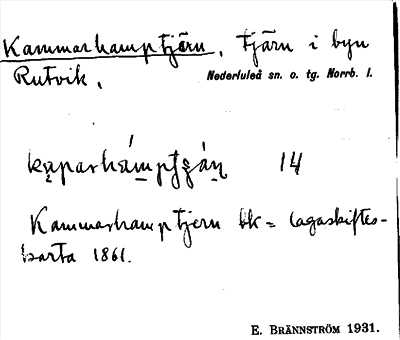 Kammarhamptjärn, tjärn i byn
Rutvik.
Nederluleå sn. o. tg. Norrb. l.
14
Kammarhamptjern kk = lagaskiftes-
karta 1861.
E. BRÄNNSTRÖM 1931.